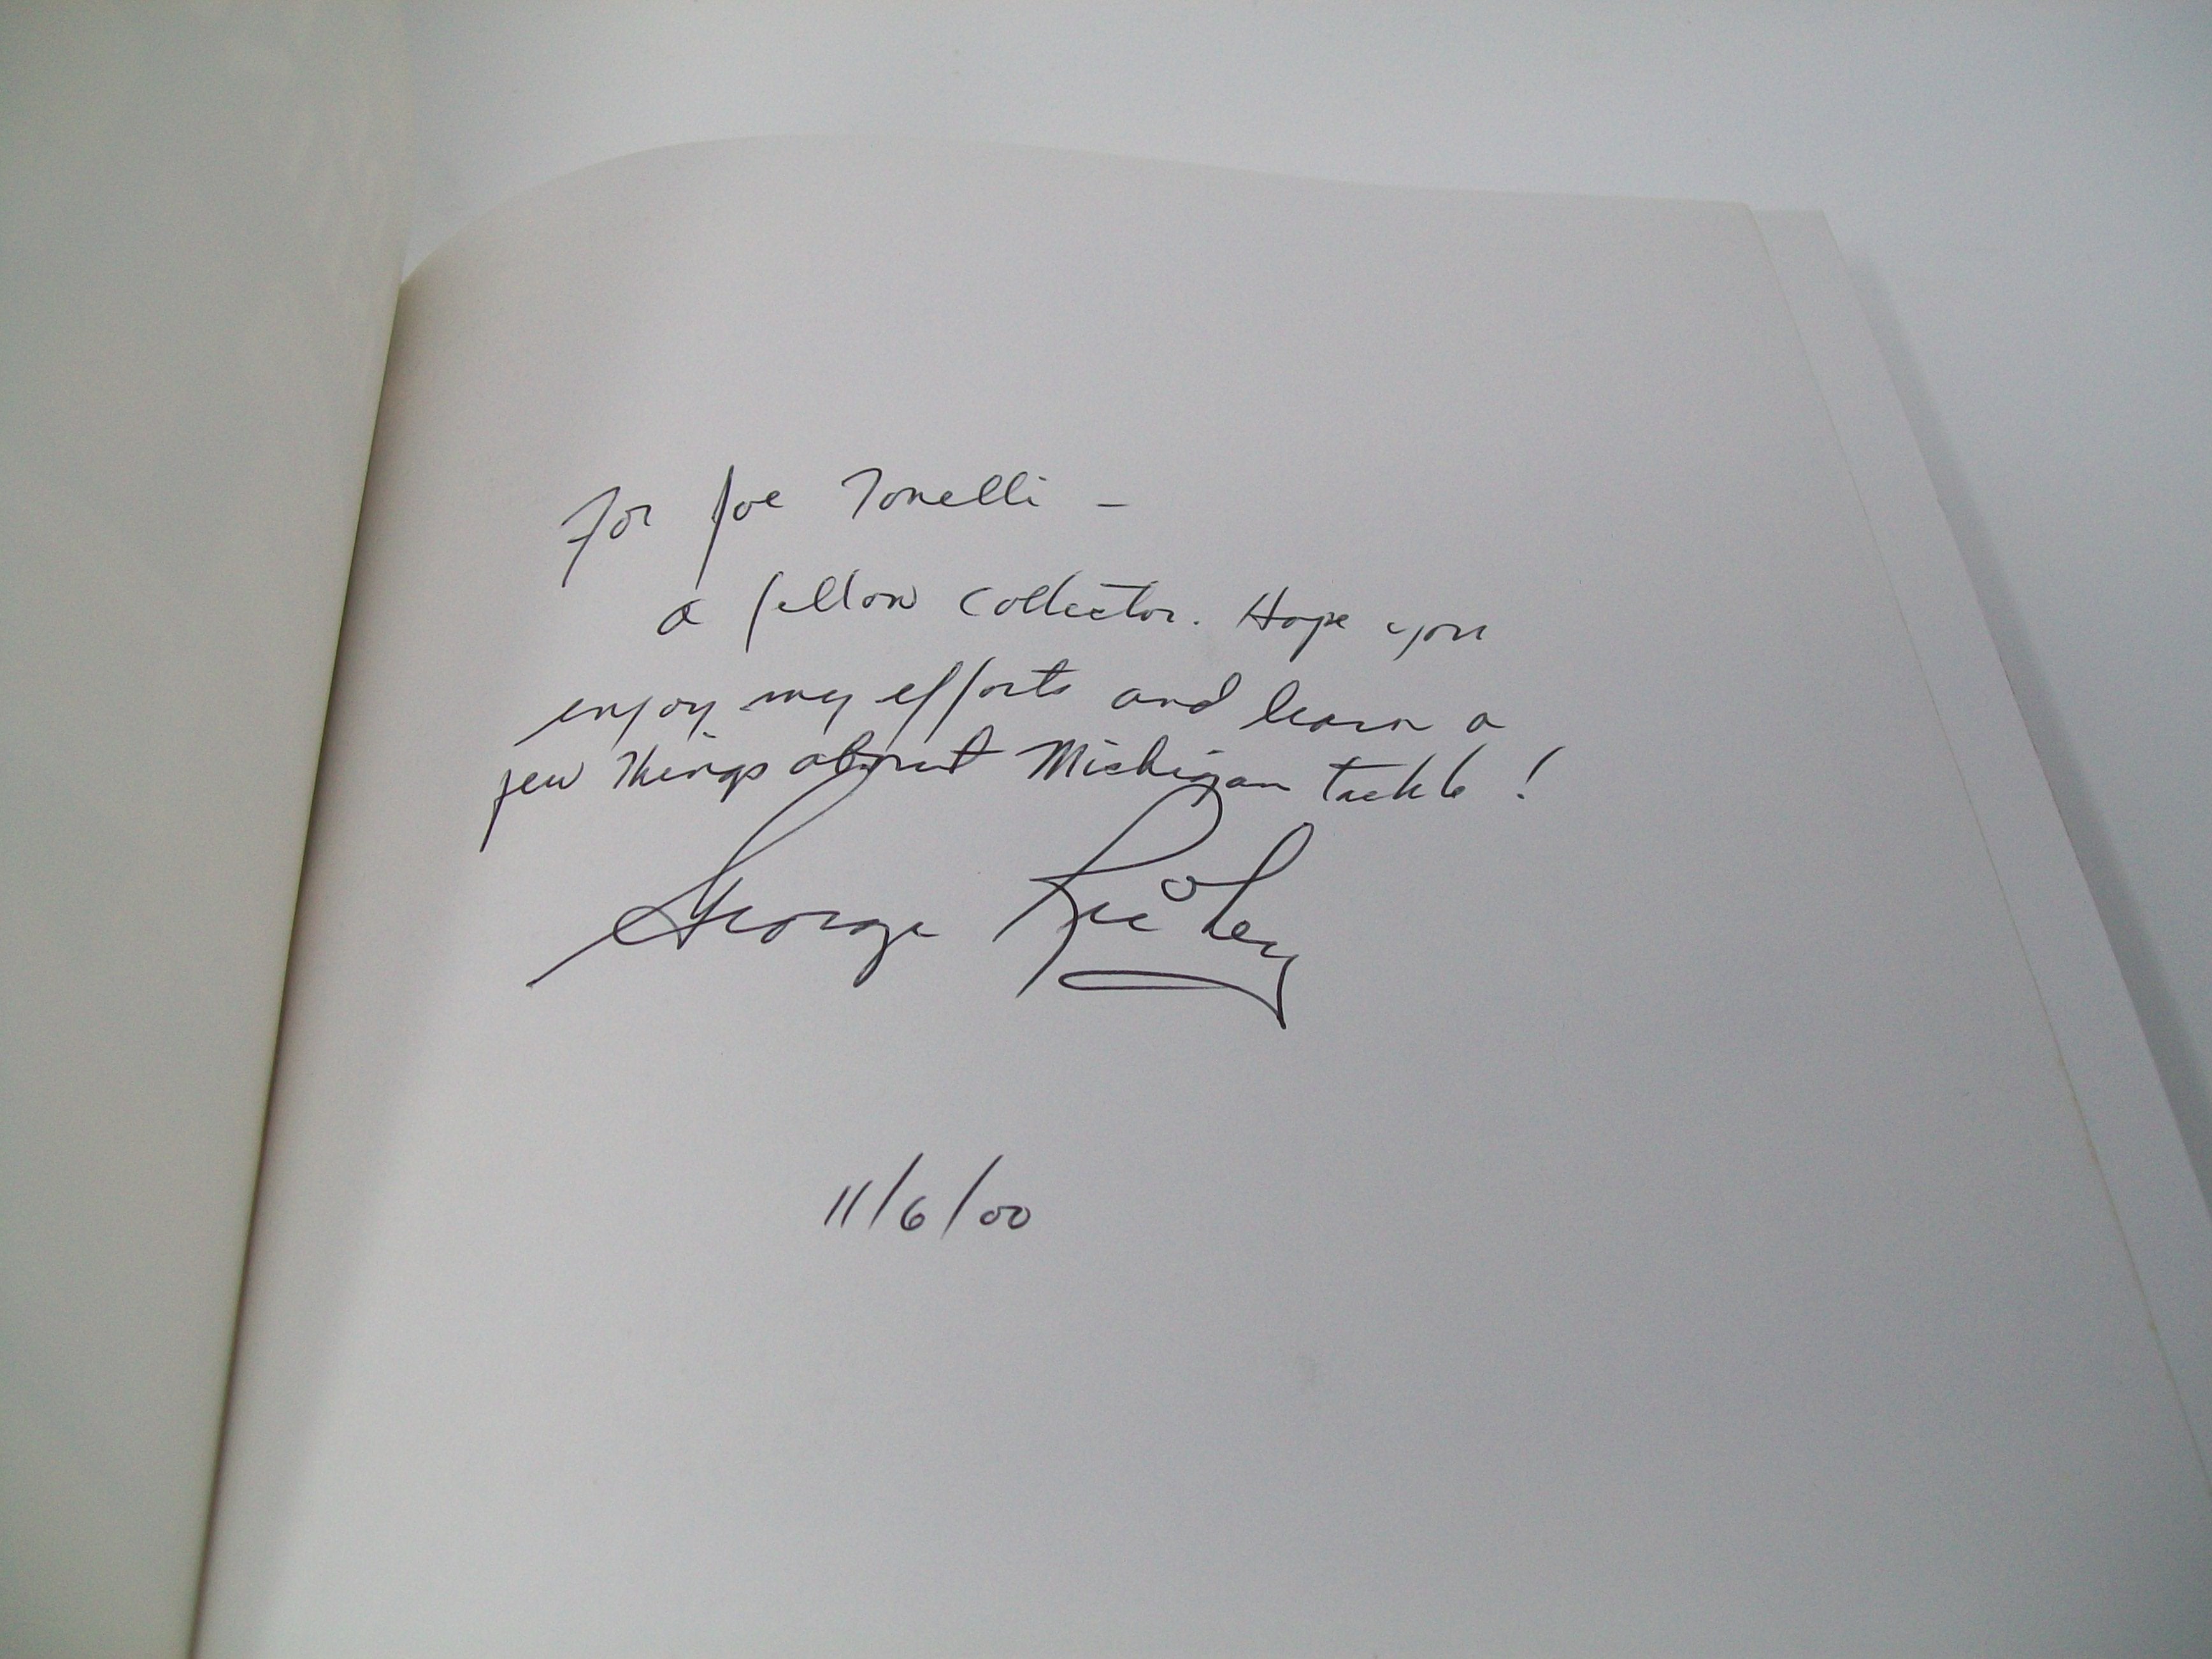 For Joe Tonelli -
a fellow collector. Hope you
enjoy my efforts and learn a
few things about Michigan tackle!
George Richey
11/6/00